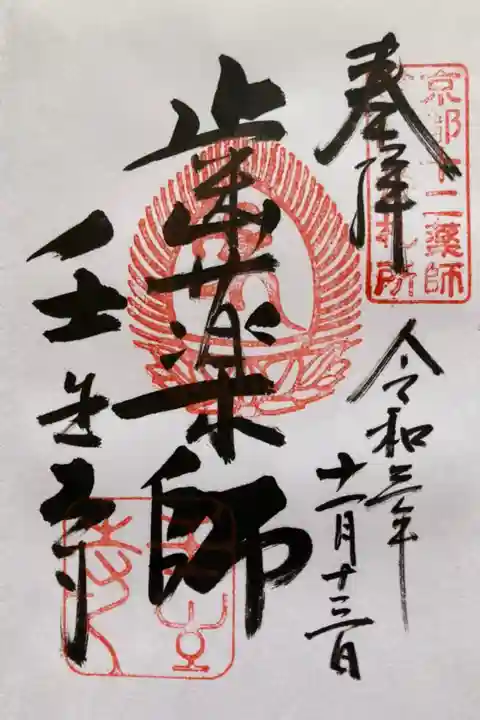 京都十二薬師
札所
奉拝
令和三年
十一月十三日
歯薬師
壬生寺